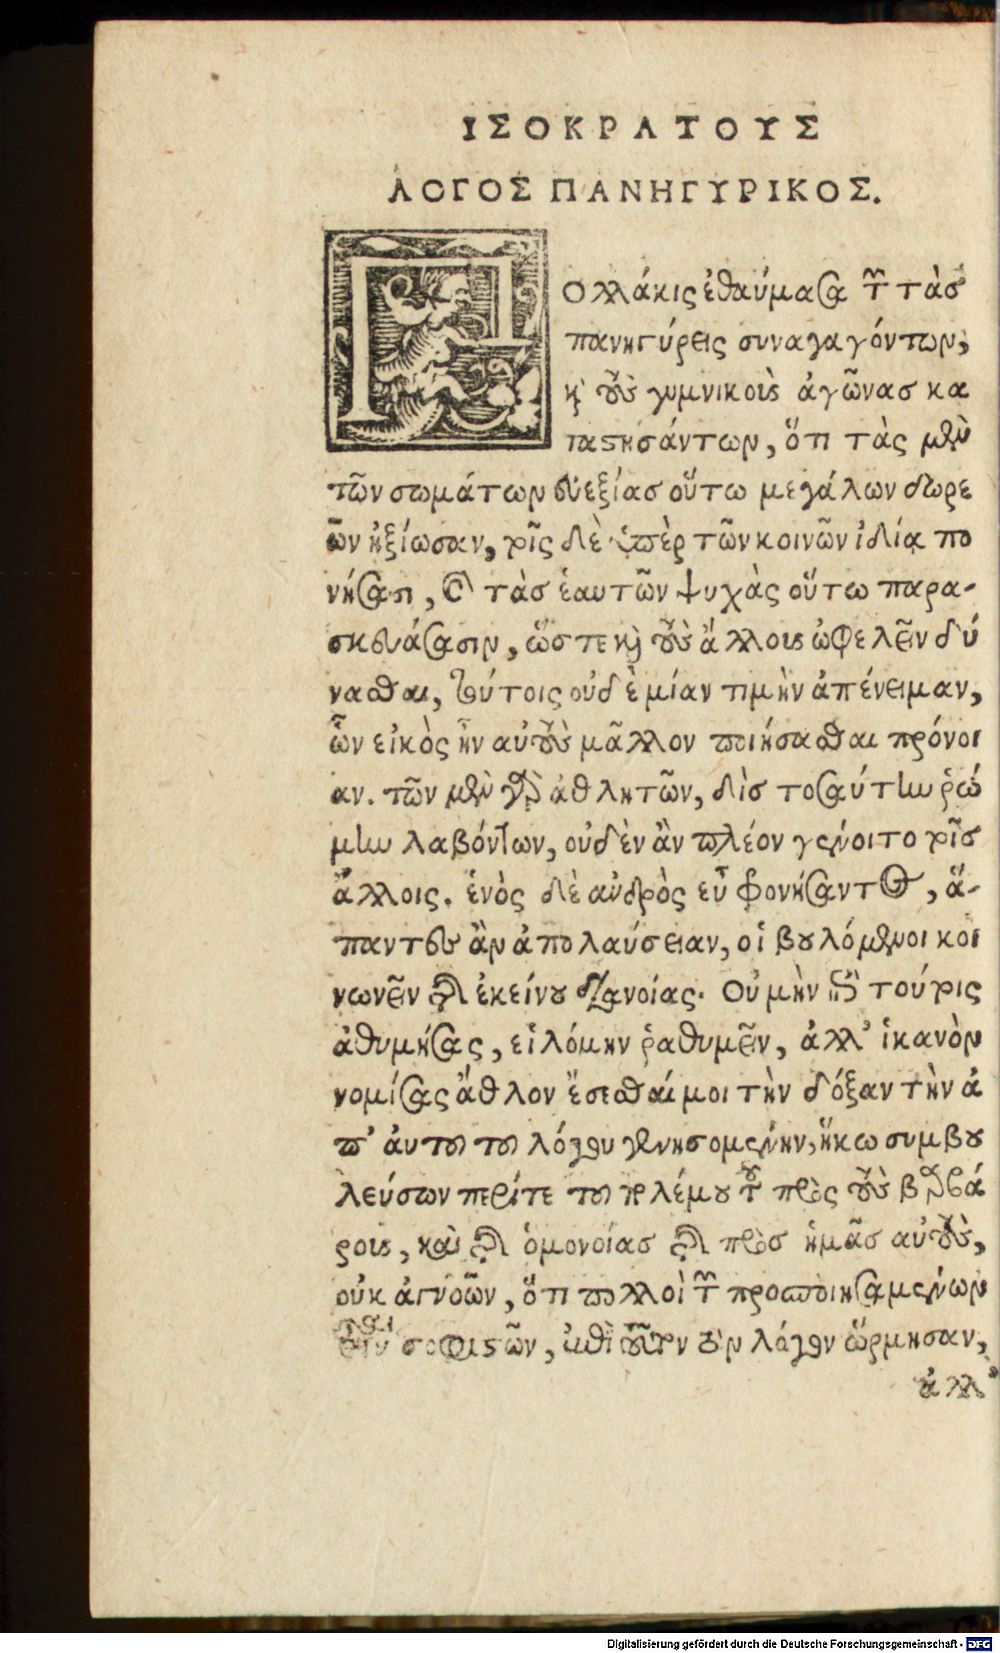 ΙΣΟΚΡΑΤΟΥΣ
ΛΟΓΟΣ ΠΑΝΗΓΥΡΙΚΟΣ.
Πολλάκις ἐθαύμασα τῶν τὰσ
πανηγύρεις συναγαγόντων,
καὶ τοὺς γυμνικοὺς ἀγῶνασ κα
ταστησάντων, ὅτι τὰς μὲν
τῶν σωμάτων εὐεξίασ οὕτω μεγάλων δωρε
ῶν ἠξίωσαν, τοῖς δὲ ὑπὲρ τῶν κοινῶν ἰδίᾳ πο
νήσασι, καὶ τὰσ ἑαυτῶν ψυχὰς οὕτω παρα-
σκευάσασιν, ὥστε καὶ τοὺς ἄλλους ὠφελεῖν δύ
νασθαι, τούτοις οὐδὲ μίαν τιμὴν ἀπένειμαν,
ὧν εἰκὸς ἦν αὐτοὺς μᾶλλον ποιήσασθαι πρόνοι
αν. τῶν μὲν γὰρ ἀθλητῶν, δὶσ τοσαύτην ῥώ
μην λαβόντων, οὐδὲν ἂν πλέον γένοιτο τοῖσ
ἄλλοις. ἑνὸς δὲ ἀνδρὸς εὖ φρονήσαντος, ἅ-
παντες ἂν ἀπολαύσειαν, οἱ βουλόμενοι κοι
νωνεῖν τῆς ἐκείνου διανοίας. Οὐ μὴν ἐπὶ τούτοις
ἀθυμήσας, εἱλόμην ῥαθυμεῖν, ἀλλ' ἱκανὸν
νομίσας ἆθλον ἔσεσθαί μοι τὴν δόξαν τὴν ἀ
π' αὐτοῦ τοῦ λόγου γενησομένην, ἥκω συμβου
λεύσων περί τε τοῦ πολέμου τοῦ πρὸς τοὺς βαρβά
ρους, καὶ τῆς ὁμονοίασ τῆς πρὸσ ἡμᾶσ αὐτοὺς,
οὐκ ἀγνοῶν, ὅτι πολλοὶ τῶν προσποιησαμένων
εἶναι σοφιστῶν, ἐπὶ τοῦτον τὸν λόγον ὥρμησαν,
ἀλλ'
Digitalisierung gefördert durch die Deutsche Forschungsgemeinschaft - DFG